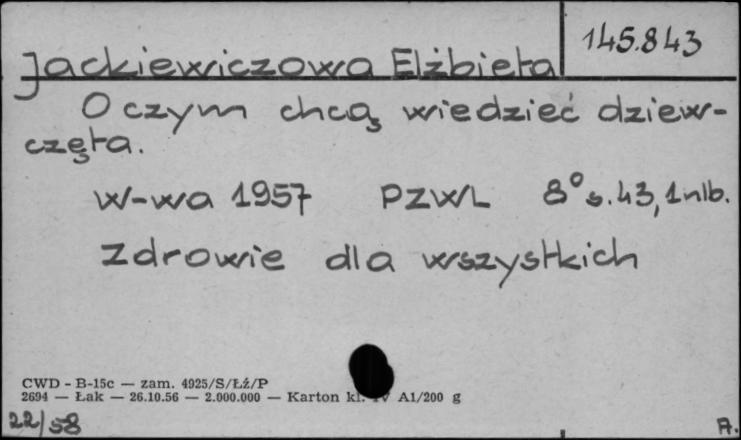 145.843
Jackiewiczowa Elżbieta
O czym chcą wiedzieć dziew-
częta.
W-wa 1957 PZWL 8° s. 43, 1 nlb.
Zdrowie dla wszystkich
CWD - B-15c — zam. 4925/S/Łź/P
2694 — Łak — 26.10.56 — 2.000.000 — Karton kl. IV A1/200 g
22/58
A.